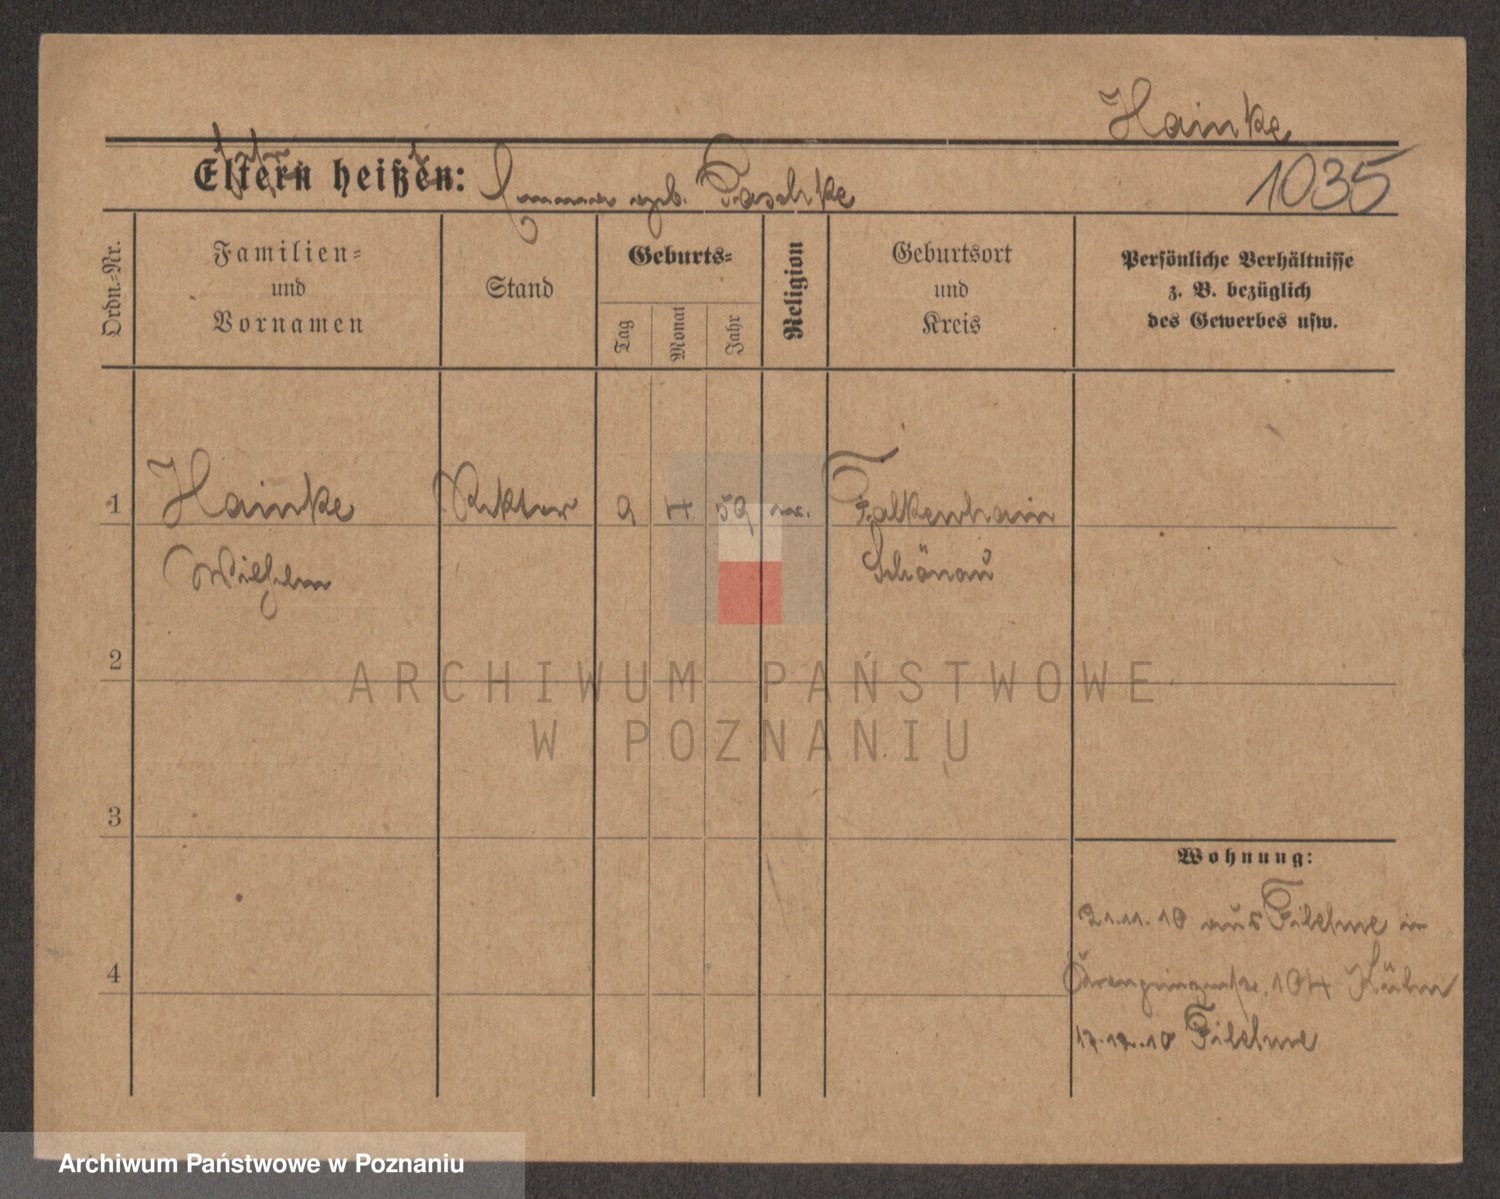 Hainke
1035
Eltern heißen:
geb. Paschke
Ordn.-Nr.
Familien-
und
Vornamen
Stand
Geburts-
Tag
Monat
Jahr
Religion
Geburtsort
und
Kreis
Persönliche Verhältnisse
z. B. bezüglich
des Gewerbes usw.
1
Hainke
Rektor
9
4
59
Falkenhain
Wilhelm
Schönau
2
ARCHIWUM PAŃSTWOWE
W POZNANIU
3
Wohnung:
21.11.10 aus Filehne in
4
104 Kühn
17.12.10 Filehne
Archiwum Państwowe w Poznaniu